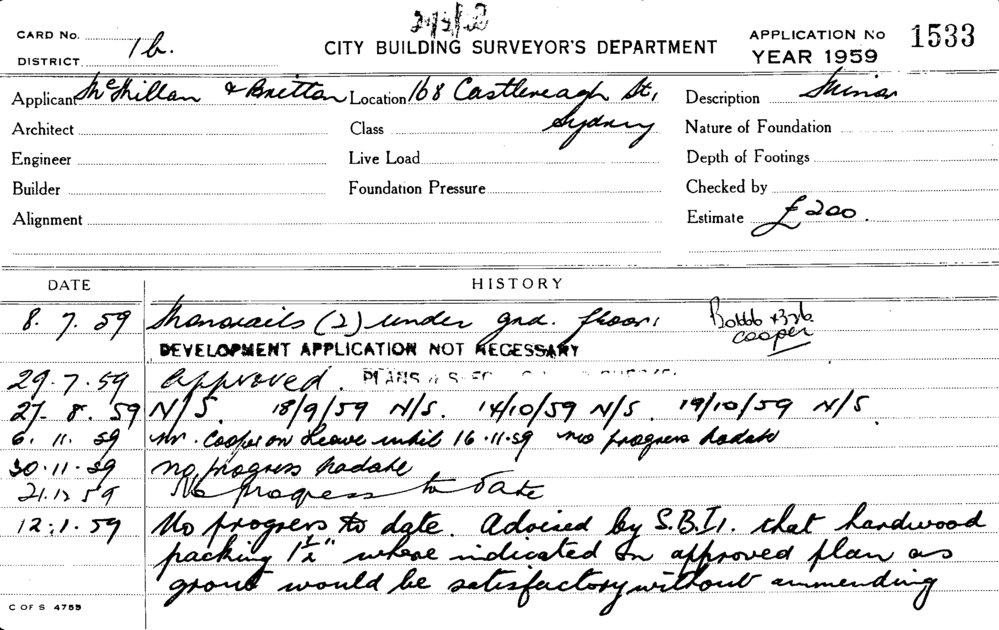 CARD No.
DISTRICT 1b.
CITY BUILDING SURVEYOR'S DEPARTMENT
APPLICATION No 1533
YEAR 1959
Applicant McMillan & Britton Location 168 Castlereagh St, Description Minor
Architect Class Sydney Nature of Foundation
Engineer Live Load Depth of Footings
Builder Foundation Pressure Checked by
Alignment Estimate £200.
DATE HISTORY
8. 7. 59 Monorails (2) under gnd. floor. Cooper
DEVELOPMENT APPLICATION NOT NECESSARY
29.7.59 Approved. PLANS
27. 8. 59 N/S. 18/9/59 N/S. 14/10/59 N/S. 19/10/59 N/S
6. 11. 59 Mr. Cooper on Leave until 16.11.59 no progress todate
30.11.59 no progress todate
21.12 59 No progress to date
12.1.59 No progress to date. Advised by S.B.I. that hardwood
packing 1½" where indicated on approved plan as
grout would be satisfactory without ammending
C OF S 4755